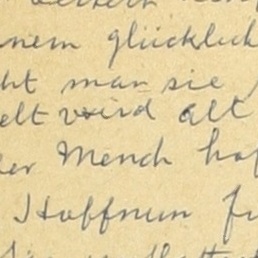 nem glücklich
ht man sie
elt wird alt
er Mench hof
Hoffnum fi